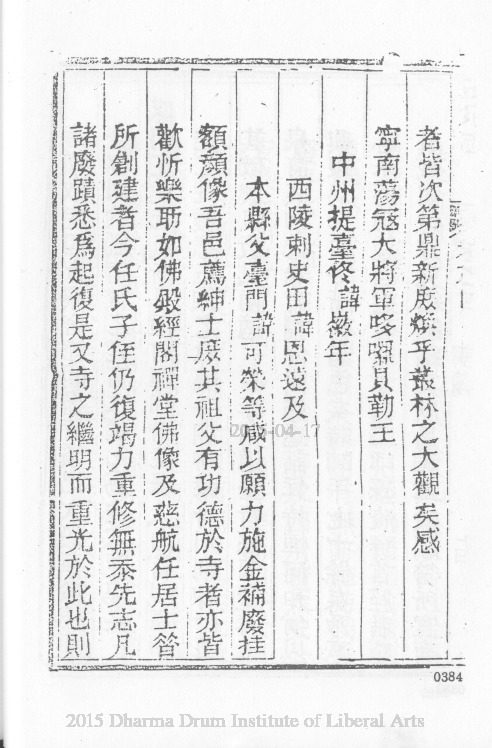 者皆次第鼎新廢煥乎叢林之大觀矣感
寧南蕩冦大將軍哆囉貝勒王
中州提臺佟諱嶽年
西陵刺史田諱恩遠及
本縣父臺門諱可榮等咸以願力施金補廢挂
額顏像吾邑薦紳士庶其祖父有功德於寺者亦皆
歡忻樂助如佛殿經閣禪堂佛像及慈航任居士曾
所創建者今任氏子侄仍復竭力重修無忝先志凡
諸廢蹟悉爲起復是又寺之繼明而重光於此也則
2015-04-17
0384
2015 Dharma Drum Institute of Liberal Arts